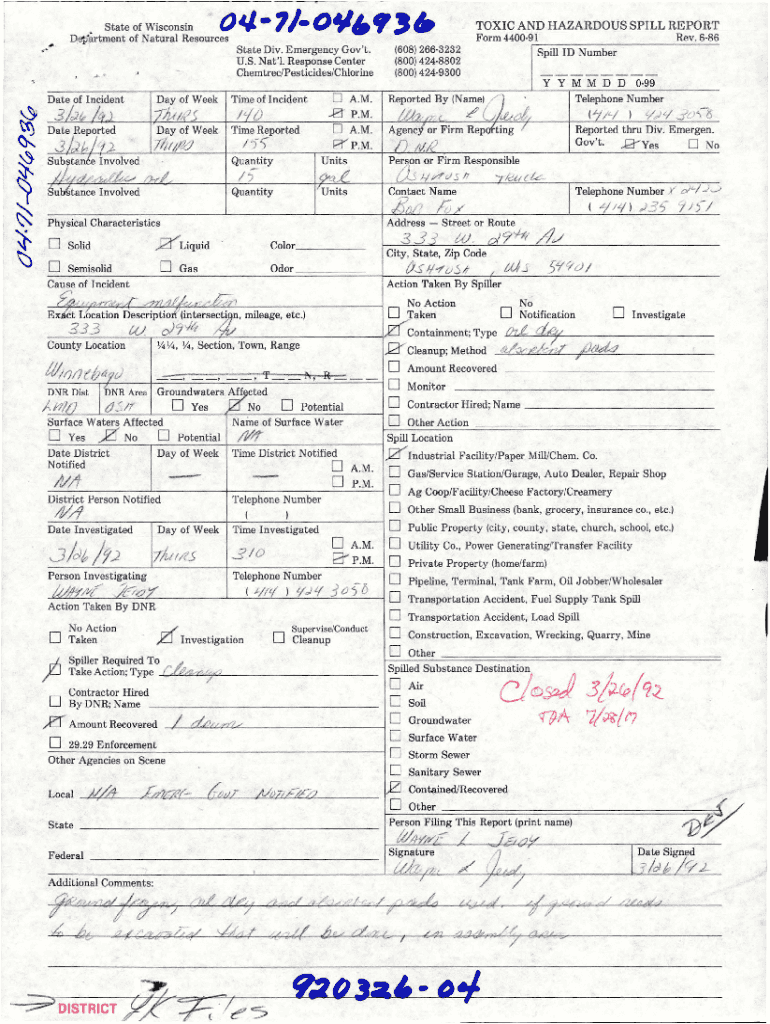 State of Wisconsin
Department of Natural Resources
04-71-046936
TOXIC AND HAZARDOUS SPILL REPORT
Form 4400-91 Rev. 6-86
State Div. Emergency Gov't. (608) 266-3232
U.S. Nat'l. Response Center (800) 424-8802
Chemtrec/Pesticides/Chlorine (800) 424-9300
Spill ID Number
Y Y M M D D 0-99
04-71-046936
Date of Incident Day of Week Time of Incident A.M. Reported By (Name) Telephone Number
3/26/92 THURS 140 P.M. Wayne L Jeidy (414) 424 3058
Date Reported Day of Week Time Reported A.M. Agency or Firm Reporting Reported thru Div. Emergen.
3/26/92 THURS 155 P.M. DNR Gov't. Yes No
Substance Involved Quantity Units Person or Firm Responsible
Hydraulic oil 15 gal OSHKOSH TRUCK
Substance Involved Quantity Units Contact Name Telephone Number X 2422
Bob Fox (414) 235 9151
Physical Characteristics Address — Street or Route
333 W. 29th Av
Solid Liquid Color
City, State, Zip Code
Semisolid Gas Odor OSHKOSH, WIS 54901
Cause of Incident Action Taken By Spiller
Equipment malfunction
No Action Taken No Notification Investigate
Exact Location Description (intersection, mileage, etc.)
333 W 29th Av
Containment; Type oil dry
County Location ¼¼, ¼, Section, Town, Range
Cleanup; Method absorbent pads
Winnebago T N, R
Amount Recovered
DNR Dist. DNR Area Groundwaters Affected
Monitor
LMD OSH Yes No Potential
Contractor Hired; Name
Surface Waters Affected Name of Surface Water
Other Action
Yes No Potential NA
Spill Location
Date District Notified Day of Week Time District Notified
Industrial Facility/Paper Mill/Chem. Co.
NA — — A.M. P.M.
Gas/Service Station/Garage, Auto Dealer, Repair Shop
Ag Coop/Facility/Cheese Factory/Creamery
District Person Notified Telephone Number
NA ( )
Other Small Business (bank, grocery, insurance co., etc.)
Public Property (city, county, state, church, school, etc.)
Date Investigated Day of Week Time Investigated
Utility Co., Power Generating/Transfer Facility
3/26/92 THURS 310 A.M. P.M.
Private Property (home/farm)
Person Investigating Telephone Number
Pipeline, Terminal, Tank Farm, Oil Jobber/Wholesaler
WAYNE JEIDY (414) 424 3058
Transportation Accident, Fuel Supply Tank Spill
Action Taken By DNR
Transportation Accident, Load Spill
No Action Taken Investigation Supervise/Conduct Cleanup
Construction, Excavation, Wrecking, Quarry, Mine
Other
Spiller Required To
Take Action; Type Cleanup
Spilled Substance Destination
Air
Closed 3/26/92
Contractor Hired
By DNR; Name
Soil
7/28/17
Groundwater
Amount Recovered 1 drum
Surface Water
29.29 Enforcement
Storm Sewer
Other Agencies on Scene
Sanitary Sewer
Local N/A EMER- GOVT NOTIFIED
Contained/Recovered
Other
State
Person Filing This Report (print name)
WAYNE L JEIDY
Federal
Signature Date Signed
Wayne L Jeidy 3/26/92
Additional Comments:
ground frozen, oil dry and absorbent pads used. if ground needs
to be excavated that will be done, in assembly area
920326-04
DISTRICT Files